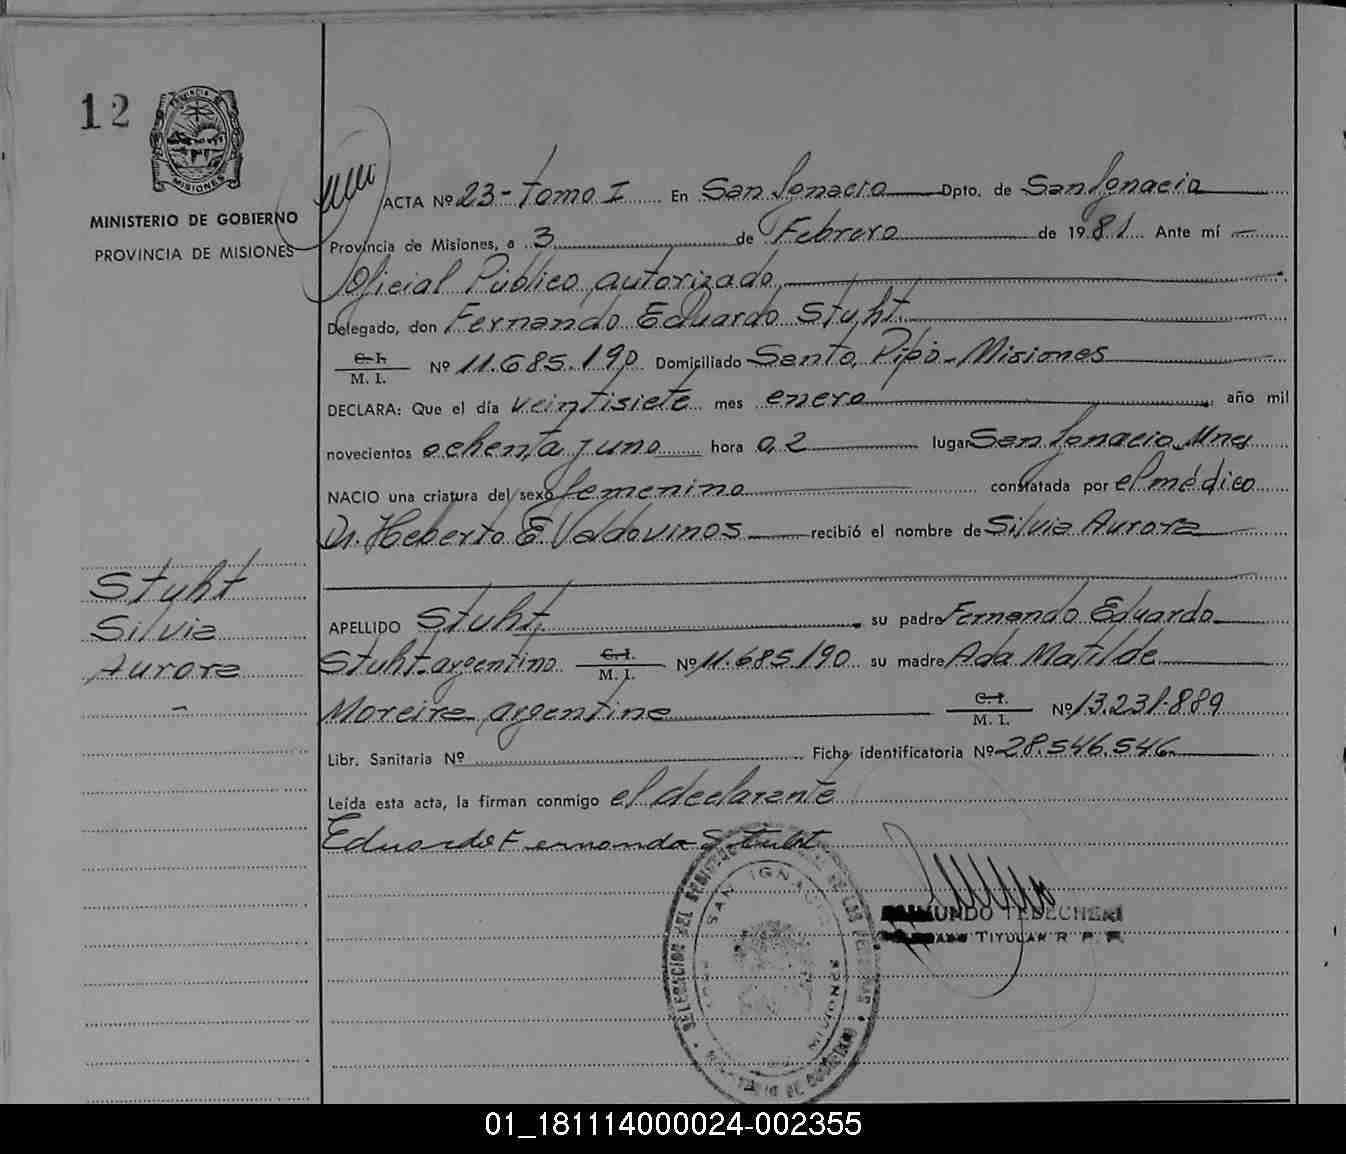 12
PROVINCIA DE
MISIONES
MINISTERIO DE GOBIERNO
PROVINCIA DE MISIONES
Stuht
Silvia
Aurora
ACTA Nº 23 - tomo I En San Ignacio Dpto. de San Ignacio
Provincia de Misiones, a 3 de Febrero de 1981 Ante mí
Oficial Público autorizado
Delegado, don Fernando Eduardo Stuht
C. I. / M. I. Nº 11.685.190 Domiciliado Santo Pipó - Misiones
DECLARA: Que el día veintisiete mes enero año mil
novecientos ochenta y uno hora 0,2 lugar San Ignacio Mnes
NACIO una criatura del sexo femenino constatada por el médico
Dr. Heberto E. Valdovinos recibió el nombre de Silvia Aurora
APELLIDO Stuht su padre Fernando Eduardo
Stuht - argentino C. I. / M. I. Nº 11.685.190 su madre Ada Matilde
Moreira argentina C. I. / M. I. Nº 13.231.889
Libr. Sanitaria Nº Ficha identificatoria Nº 28.546.546
Leída esta acta, la firman conmigo el declarante
Eduardo Fernando Stuht
DELEGACION DEL
SAN IGNACIO
MISIONES
RAIMUNDO
TITULAR R. P. P.
01_181114000024-002355